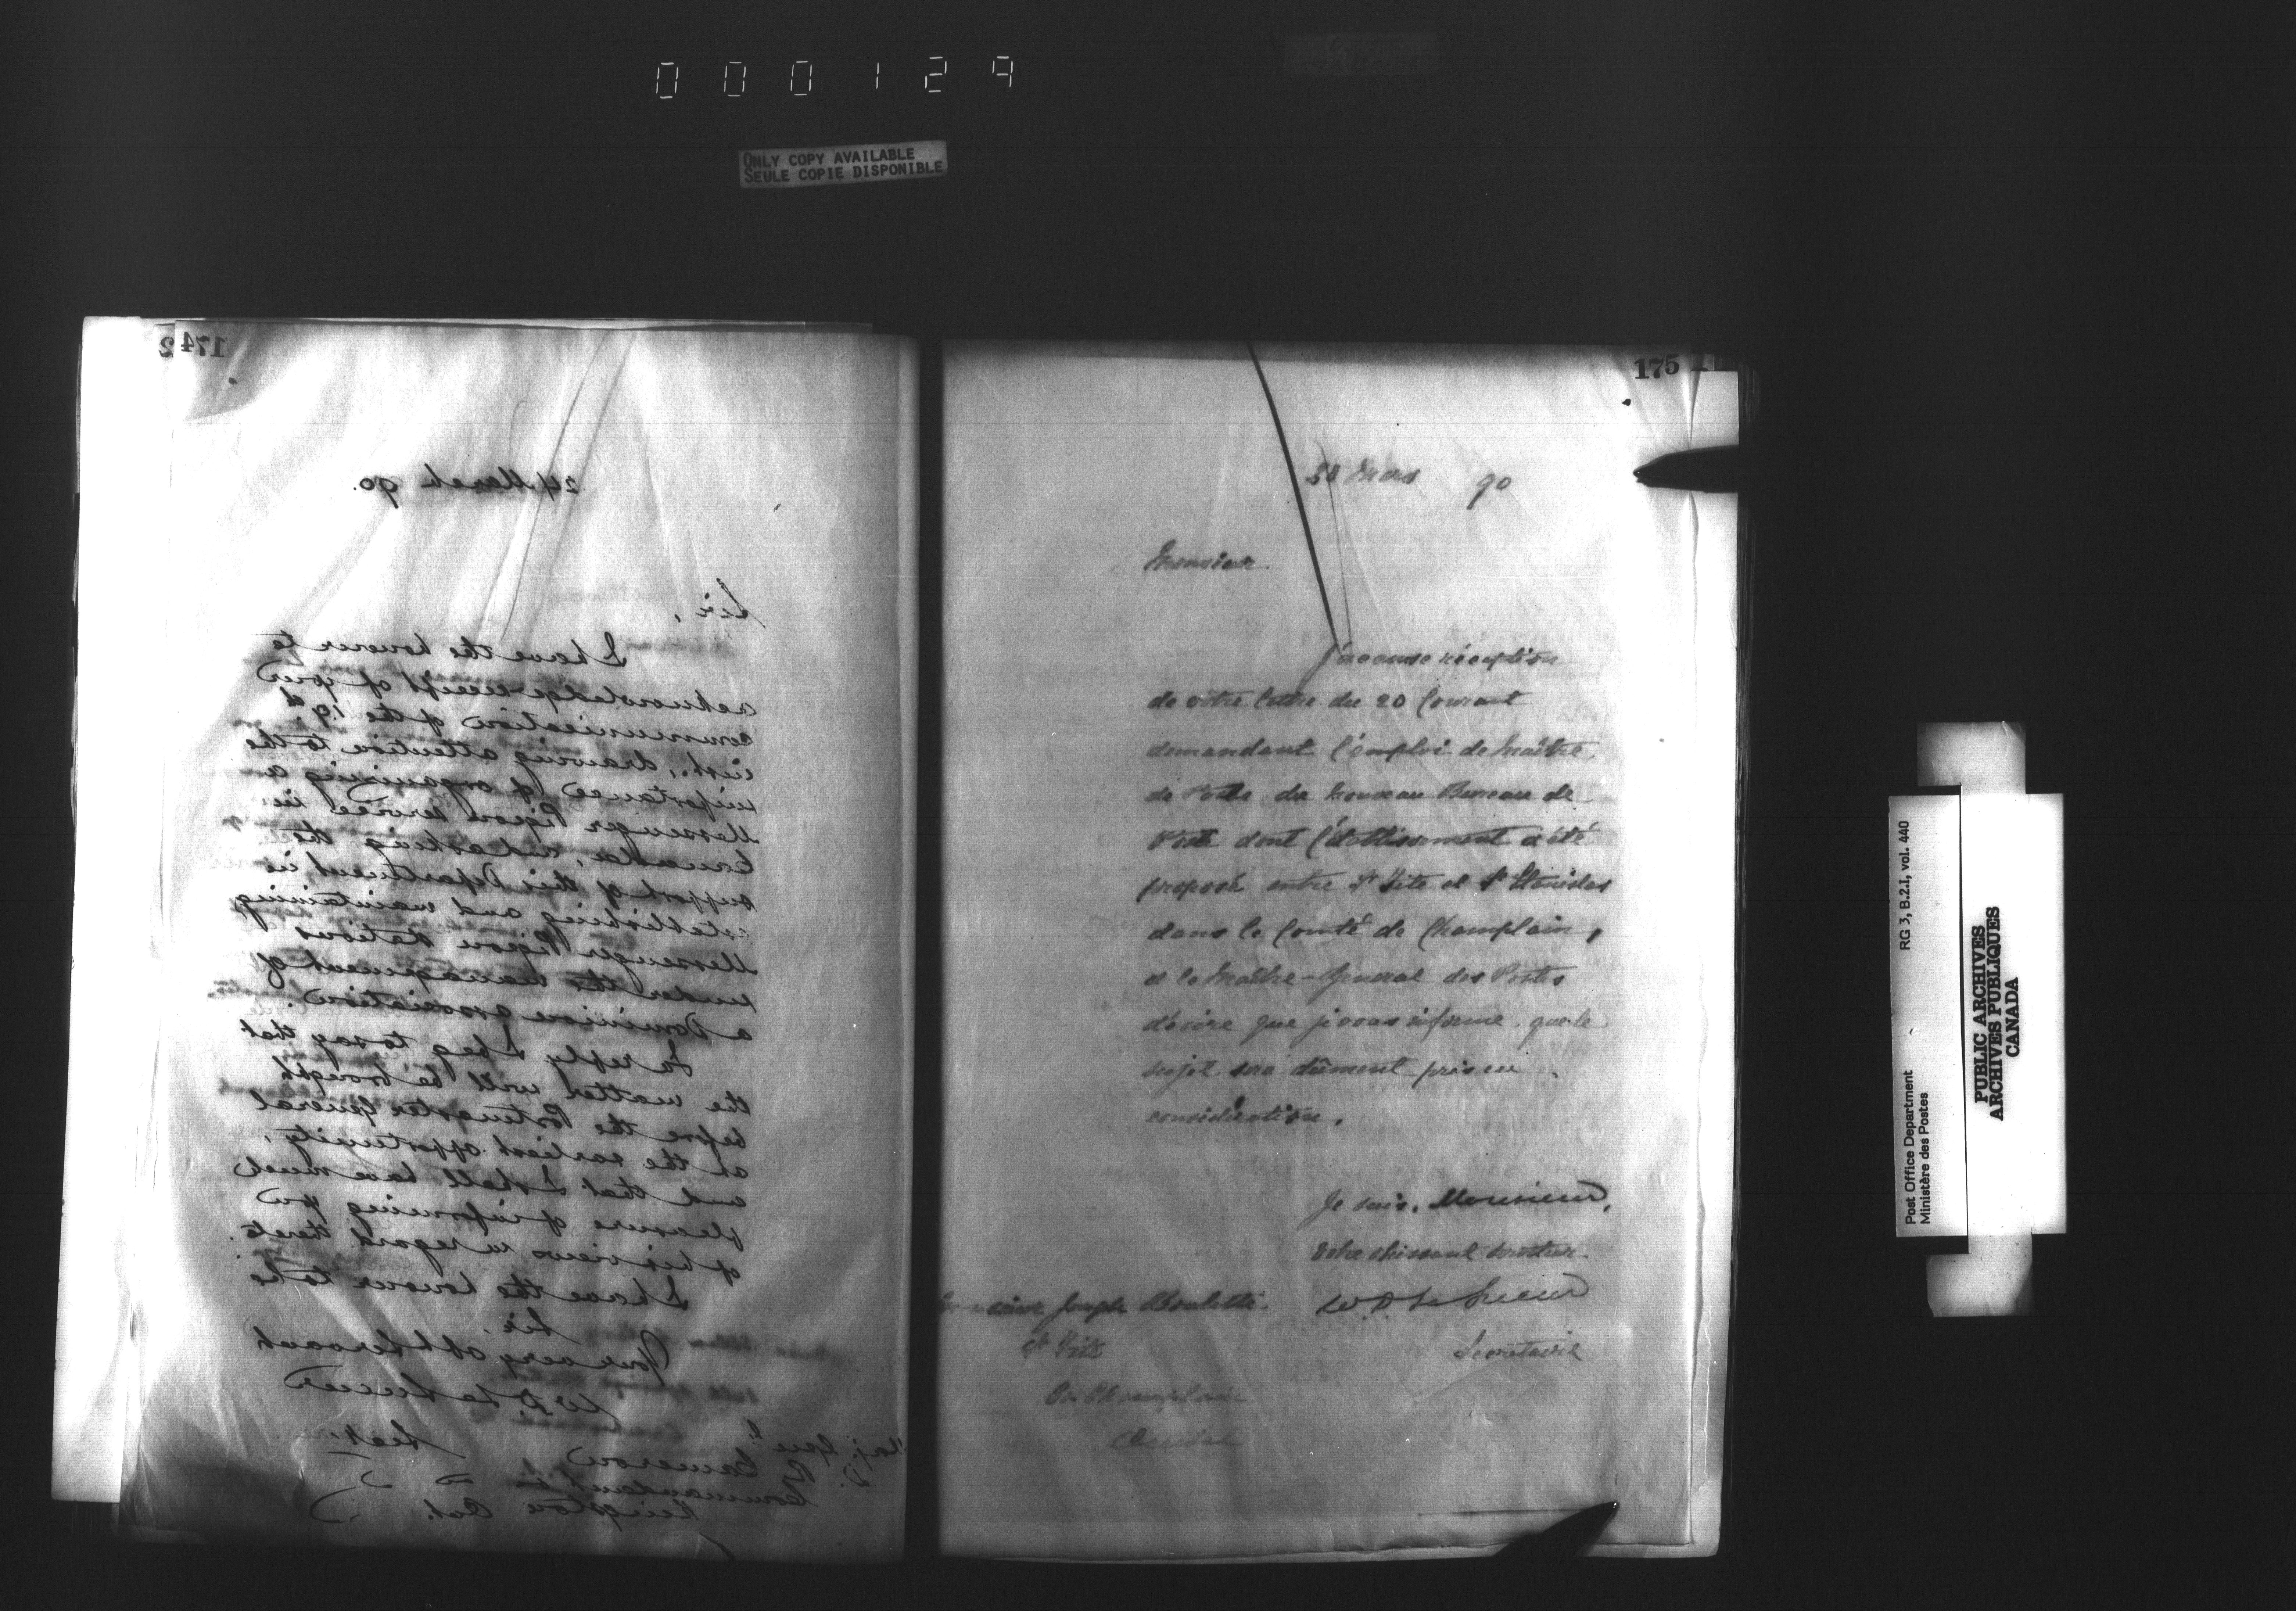 000129
ONLY COPY AVAILABLE
SEULE COPIE DISPONIBLE
174
2
24 March 90.
Sir,
I have the honour to
acknowledge receipt of your
communication of the 19th
inst., drawing attention to the
importance of organizing a
Messenger Pigeon service in
Canada, and asking the
support of this Department in
establishing and maintaining
Messenger Pigeon stations
under the management of
a Dominion association.
In reply I beg to say that
the matter will be brought
before the Postmaster General
at the earliest opportunity,
and that I shall have much
pleasure of informing you
of his views in regard thereto.
I have the honour to be
Sir,
Your very obt servant
W.D. LeSueur
Secty
Maj. Genl
D. Cameron
Commandant
Kingston Ont.
175
Mars 90
Monsieur
J'accuse réception
de votre lettre du 20 Courant
demandant l'emploi de Maître
de Poste du Nouveau Bureau de
Poste dont l'établissement a été
proposé entre St Tite et St Stanislas
dans le Comté de Champlain,
et le Maître-General des Postes
désire que je vous informe que le
sujet sera dûment pris en
considération.
Je suis, Monsieur,
Votre obéissant serviteur
W.D. LeSueur
Secretaire
Monsieur Joseph
St Tite
Co. Champlain
Quebec
Post Office Department
Ministère des Postes
RG 3, B.2.I, vol. 440
PUBLIC ARCHIVES
ARCHIVES PUBLIQUES
CANADA